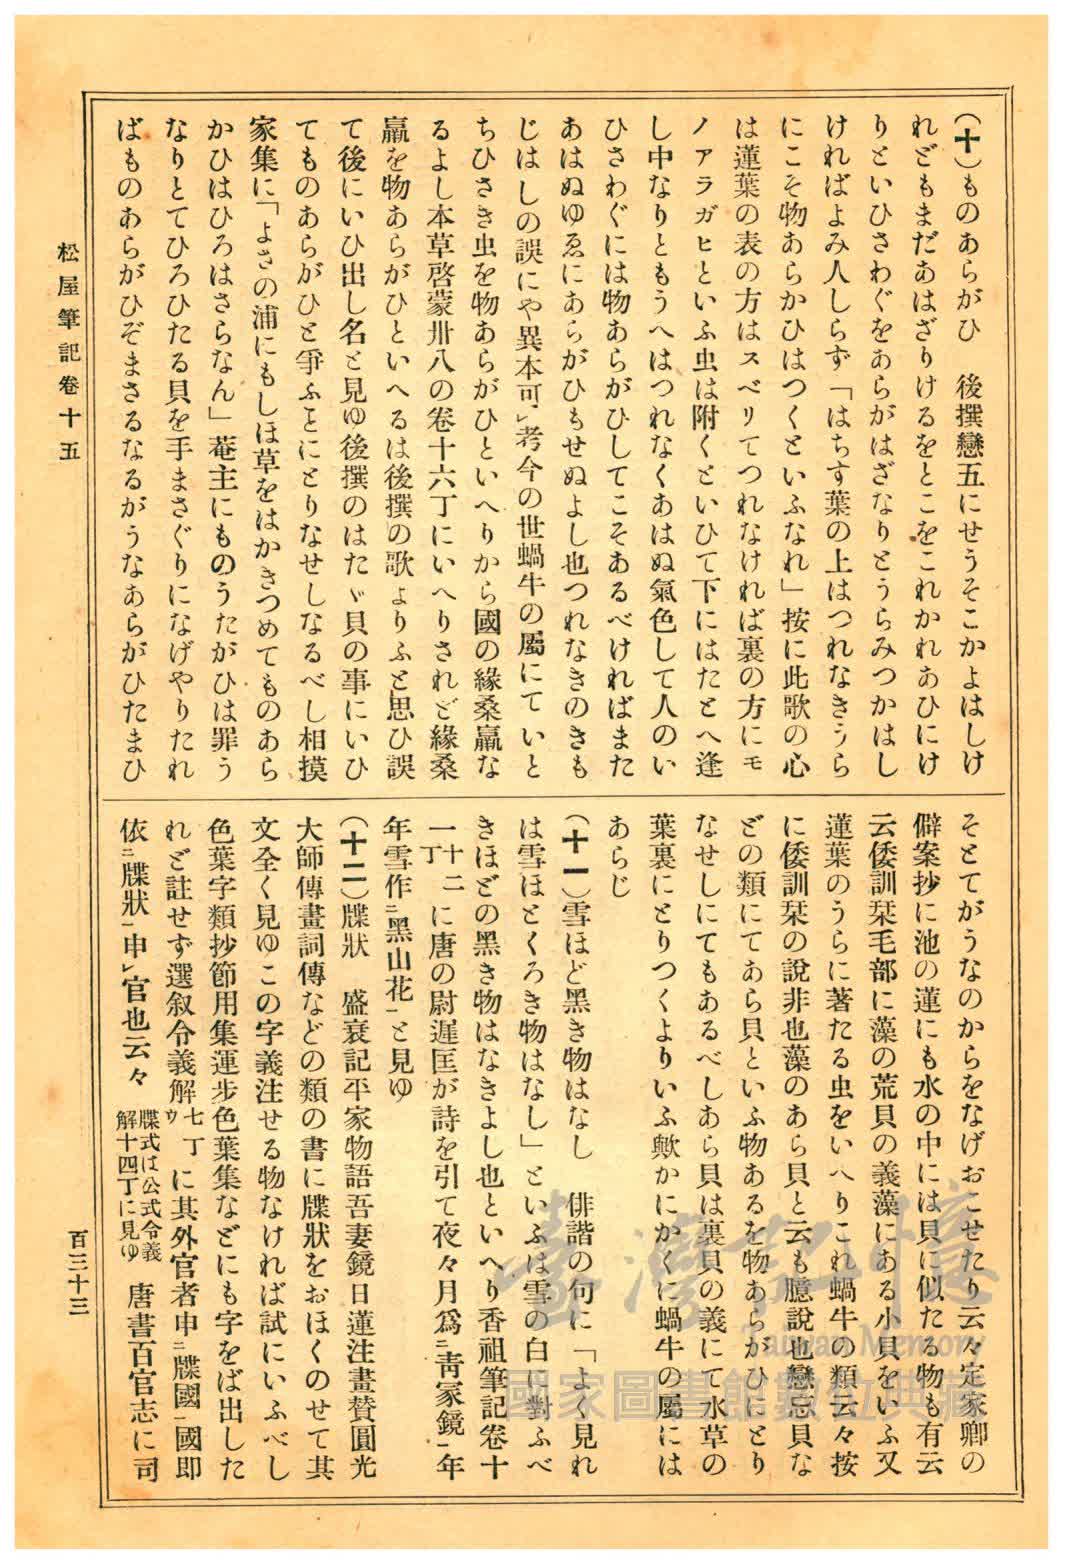 (十)ものあらがひ　後撰戀五にせうそこかよはしけ
れどもまだあはざりけるをとこをこれかれあひにけ
りといひさわぐをあらがはざなりとうらみつかはし
ければよみ人しらず「はちす葉の上はつれなきうら
にこそ物あらかひはつくといふなれ」按に此歌の心
は蓮葉の表の方はスベリてつれなければ裏の方にモ
ノアラガヒといふ虫は附くといひて下にはたとへ逢
し中なりともうへはつれなくあはぬ氣色して人のい
ひさわぐには物あらがひしてこそあるべければまた
あはぬゆゑにあらがひもせぬよし也つれなきのきも
じはしの誤にや異本可㆑考今の世蝸牛の屬にていと
ちひさき虫を物あらがひといへりから國の緣桑蠃な
るよし本草啓蒙卅八の卷十六丁にいへりされど緣桑
蠃を物あらがひといへるは後撰の歌よりふと思ひ誤
て後にいひ出し名と見ゆ後撰のはたゞ貝の事にいひ
てものあらがひと爭ふことにとりなせしなるべし相摸
家集に「よさの浦にもしほ草をはかきつめてものあら
かひはひろはさらなん」菴主にものうたがひは罪う
なりとてひろひたる貝を手まさぐりになげやりたれ
ばものあらがひぞまさるなるがうなあらがひたまひ
そとてがうなのからをなげおこせたり云々定家卿の
僻案抄に池の蓮にも水の中には貝に似たる物も有云
云倭訓栞毛部に藻の荒貝の義藻にある小貝をいふ又
蓮葉のうらに著たる虫をいへりこれ蝸牛の類云々按
に倭訓栞の說非也藻のあら貝と云も臆說也戀忘貝な
どの類にてあら貝といふ物あるを物あらがひにとり
なせしにてもあるべしあら貝は裏貝の義にて水草の
葉裏にとりつくよりいふ歟かにかくに蝸牛の屬には
あらじ
(十一)雪ほど黑き物はなし　俳諧の句に「よく見れ
は雪ほとくろき物はなし」といふは雪の白に對ふべ
きほどの黑き物はなきよし也といへり香祖筆記卷十
一十二丁に唐の尉遲匡が詩を引て夜々月爲㆓靑冢鏡㆒年
年雪作㆓黑山花㆒と見ゆ
(十二)牒狀　盛衰記平家物語吾妻鏡日蓮注畫賛圓光
大師傳畫詞傳などの類の書に牒狀をおほくのせて其
文全く見ゆこの字義注せる物なければ試にいふべし
色葉字類抄節用集運步色葉集などにも字をば出した
れど註せず選叙令義解七丁ウに其外官者申㆓牒國㆒國即
依㆓牒狀㆒申㆑官也云々牒式は公式令義解十四丁に見ゆ　唐書百官志に司
松屋筆記卷十五
百三十三
臺灣記憶
Taiwan Memory
國家圖書館數位典藏